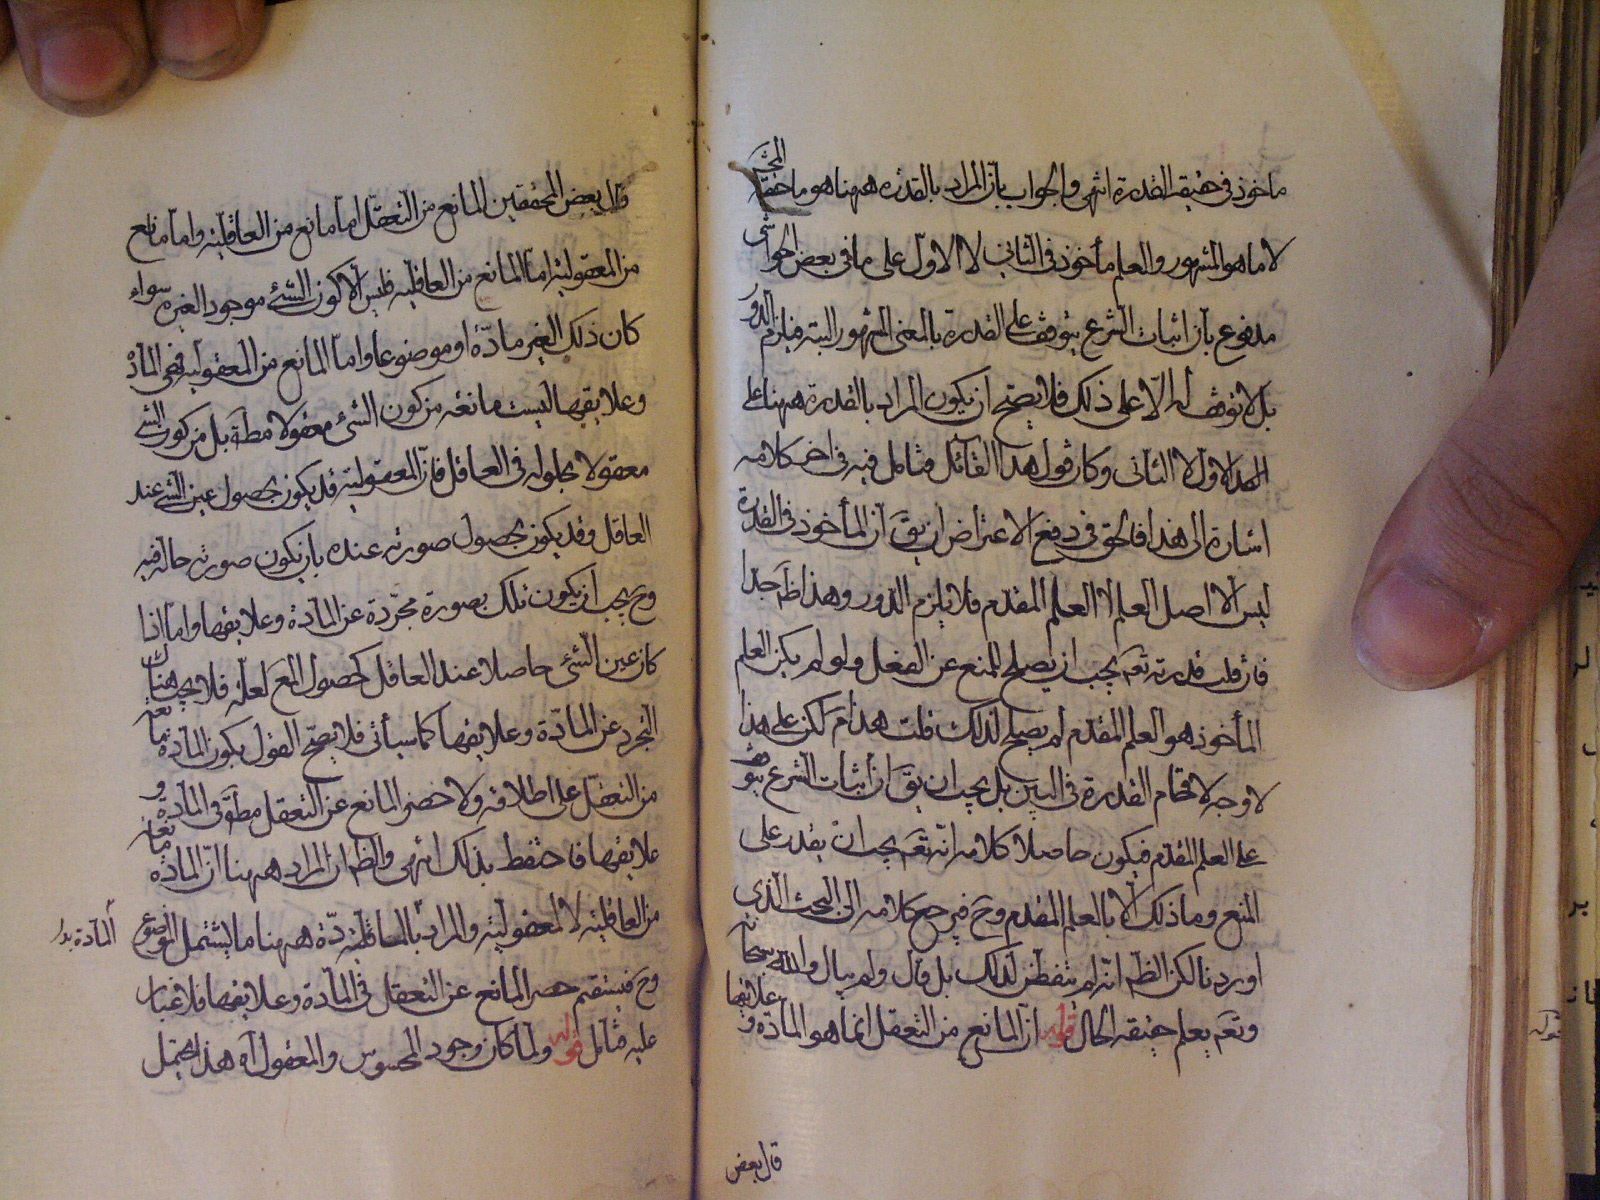 ماخوذ في حقيقة القدرة انتهى والجواب بان المراد بالقدرة ههنا هو ما حققه المحشي
لا ما هو المشهور والعلم مأخوذ في الثاني لا الاول على ما في بعض الحواشي
مدفوع بان اثبات الشرع يتوقف على القدرة بالمعنى المشهور البتة فيلزم الدور
بل لا توقف له الا على ذلك فلا يصح ان يكون المراد بالقدرة ههنا على
الاول لا الثاني وكان قول هذا القائل فتامل فيه في اخر كلامه
اشارة الى هذا فالحق في دفع الاعتراض ان يق ان المأخوذ في القدرة
ليس الا اصل العلم لا العلم المقدم فلا يلزم الدور وهذا ظ جدا
فان قلت قدرته تعم يجب ان يصلح للمنع عن الفعل ولو لم يكن العلم
المأخوذ هو العلم المقدم لم يصلح لذلك قلت هذا م لكن على هذا
لا وجه لاقحام القدرة في البين بل يجب ان يق ان اثبات الشرع يتوقف
على العلم المقدم فيكون حاصل كلامه انه تعم يجب ان يقدر على
المنع وما ذلك الا بالعلم المقدم وح فيرجع كلامه الى البحث الذي
اوردنا لكن الظ انه لم يتفطن لذلك بل قال ولم يبال والله سبحانه
وتعم يعلم حقيقة الحال قوله ان المانع من التعقل انما هو المادة وعلايقها
قال بعض
قال بعض المحققين المانع من التعقل اما مانع من العاقلية واما مانع
من المعقولية اما المانع من العاقلية فليس الا كون الشئ موجودا لغيره سواء
كان ذلك الغير مادة او موضوعا واما المانع من المعقولية فهي المادة
وعلايقها ليست مانعة من كون الشئ معقولا مطة بل من كون الشئ
معقولا بحلوله في العاقل فان المعقولية قد يكون بحصول عين الشئ عند
العاقل وقد يكون بحصول صورته عنده بان يكون صورته حالة فيه
وح يجب ان يكون تلك بصورة مجردة عن المادة وعلايقها واما اذا
كان عين الشئ حاصلا عند العاقل كحصول المع لعلة فلا يجب هناك
التجرد عن المادة وعلايقها كما سيأتي فلا يصح القول بكون المادة مانعة
من التعقل على اطلاقه ولا حصر المانع عن التعقل مطة في المادة و
علايقها فاحتفظ بذلك انتهى والظ ان المراد ههنا ان المادة مانعة
من العاقلية لا المعقولية والمراد بالمادة ههنا ما يشتمل الموضوع
المادة بدل
وح فيستقيم حصر المانع عن التعقل في المادة وعلايقها فلا غبار
عليه فتامل قوله ولما كان وجود المحسوس والمعقول اه هذا يحتمل